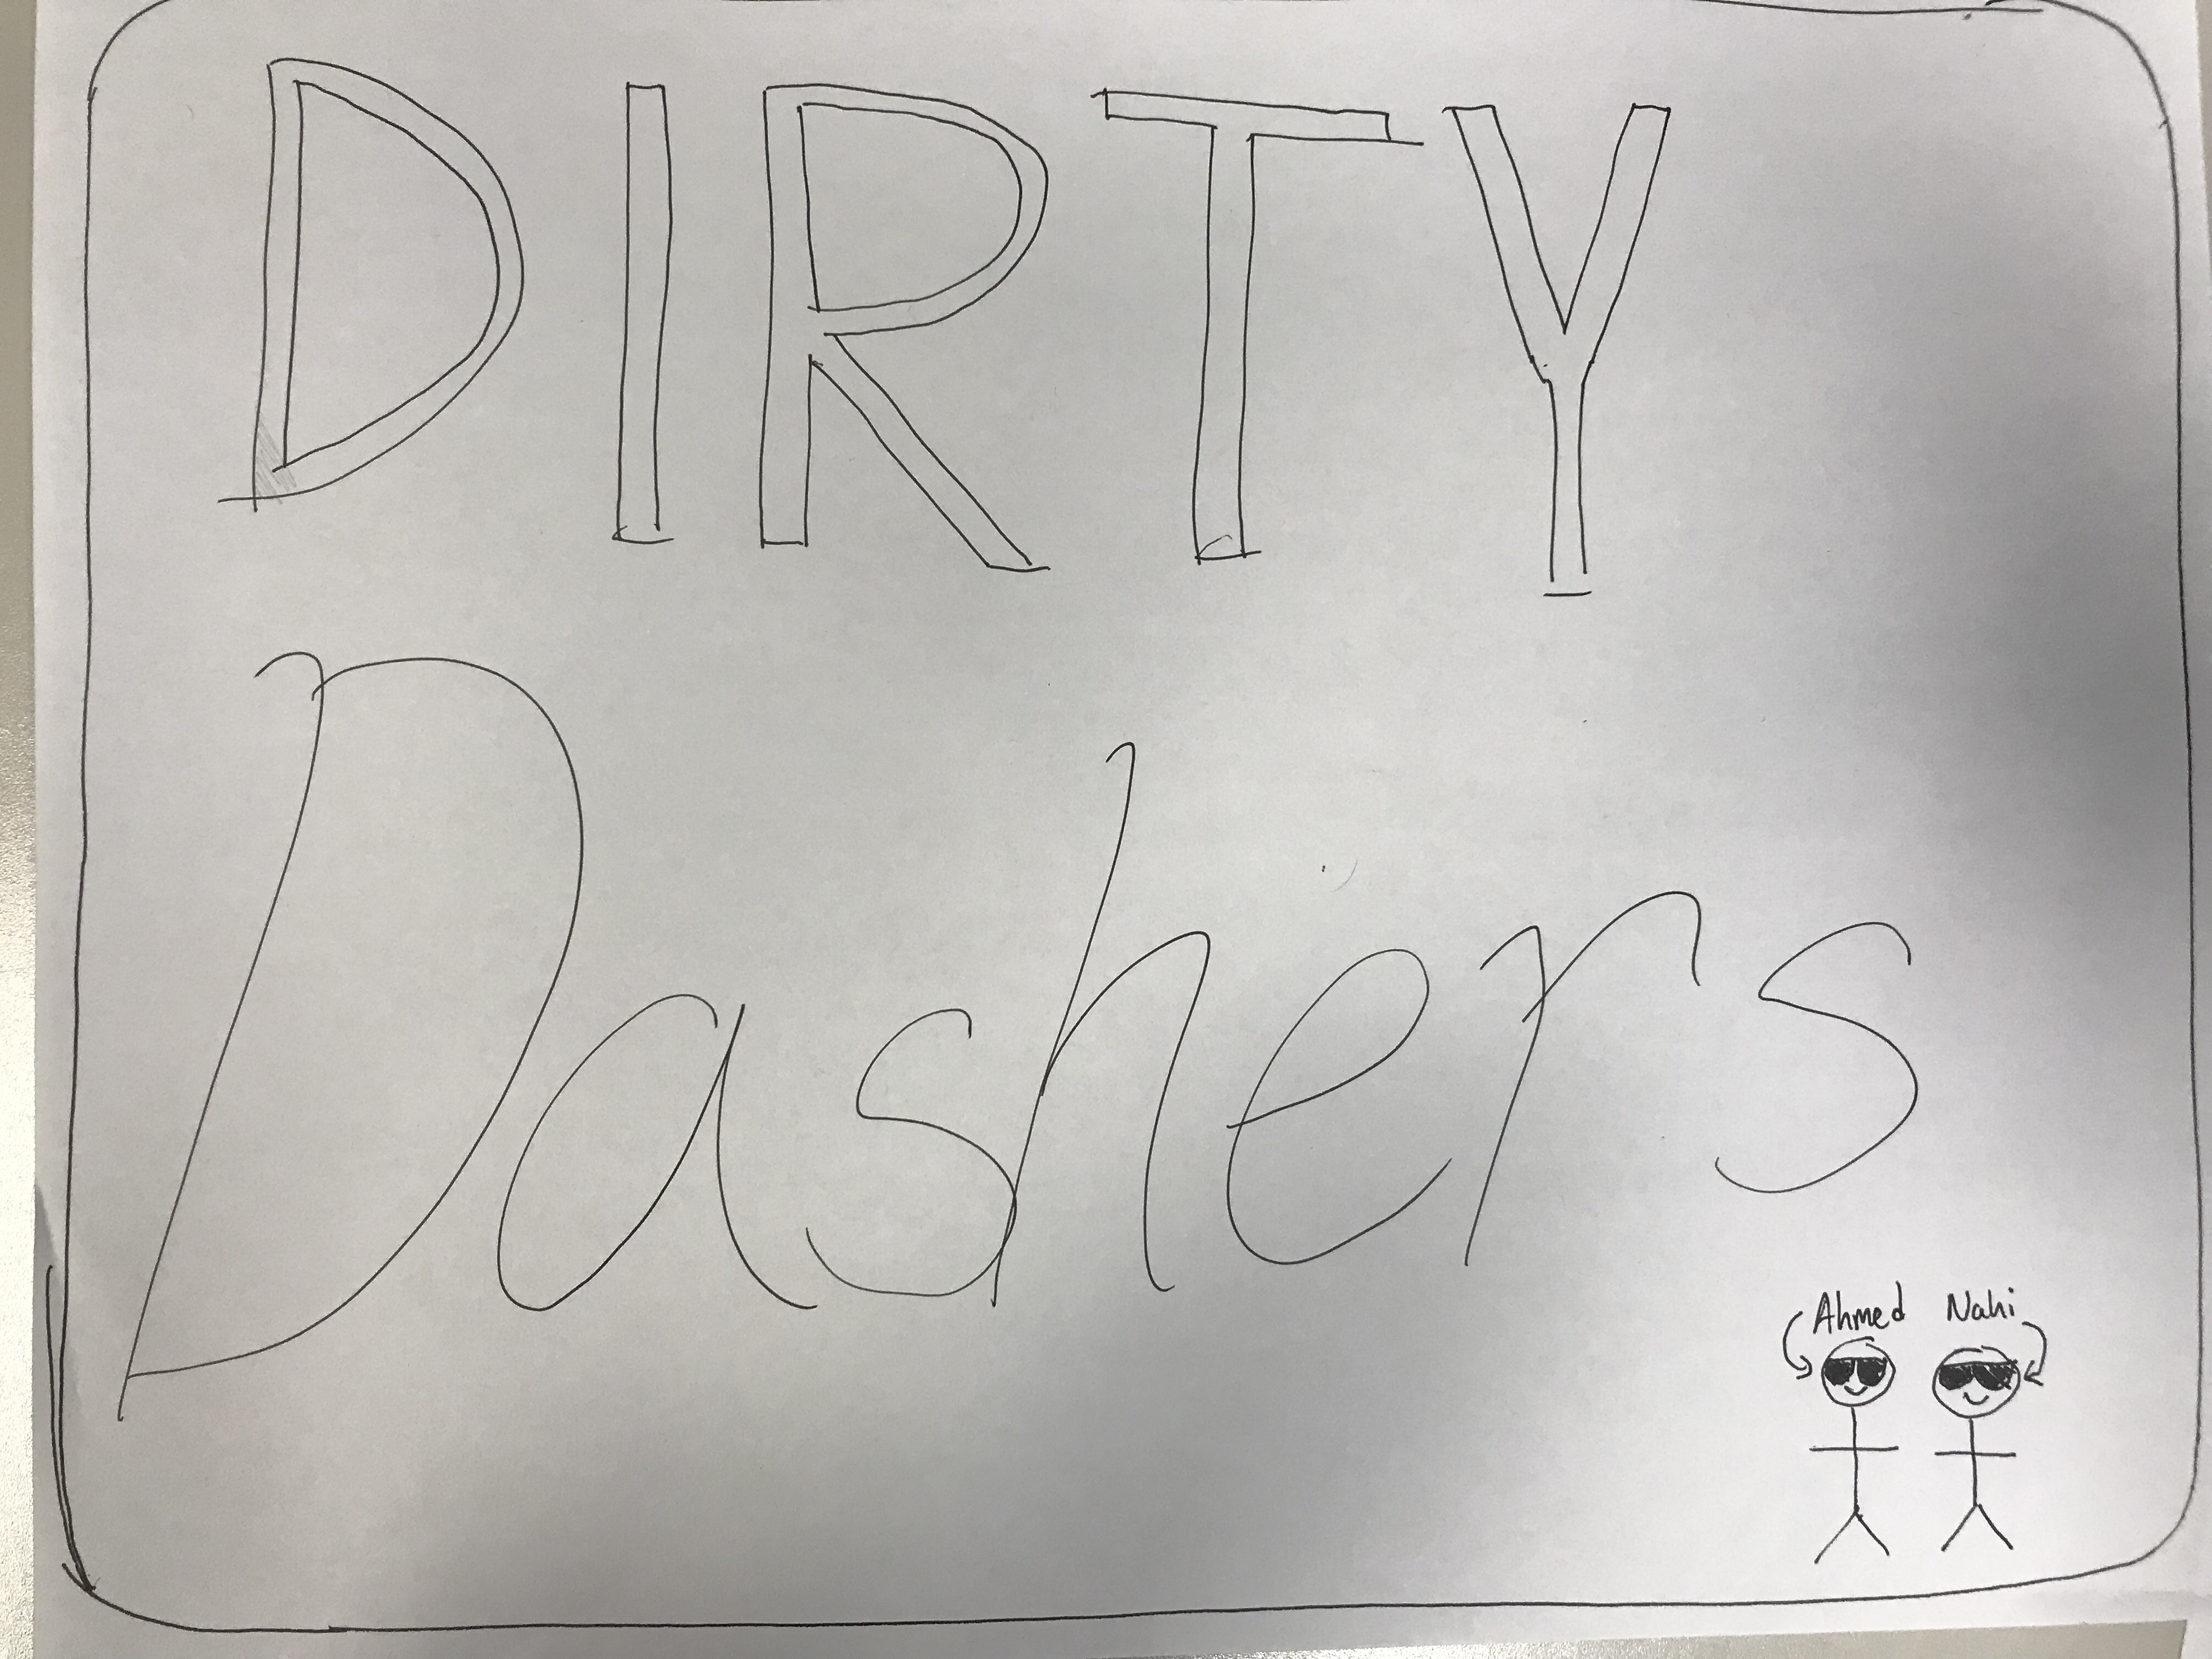 DIRTY
Dashers
Ahmed Nahi